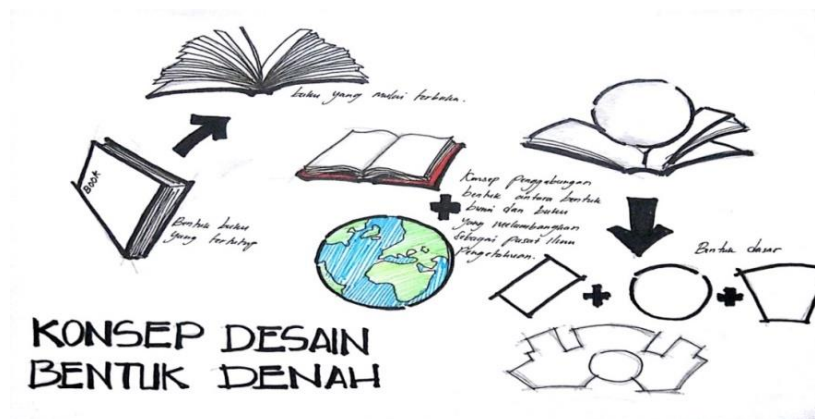 buku yang mulai terbuka.
BOOK
Bentuk buku
yang tertutup
Konsep penggabungan
bentuk antara bentuk
bumi dan buku
yang melambangkan
sebagai pusat ilmu
pengetahuan.
Bentuk dasar
KONSEP DESAIN
BENTUK DENAH